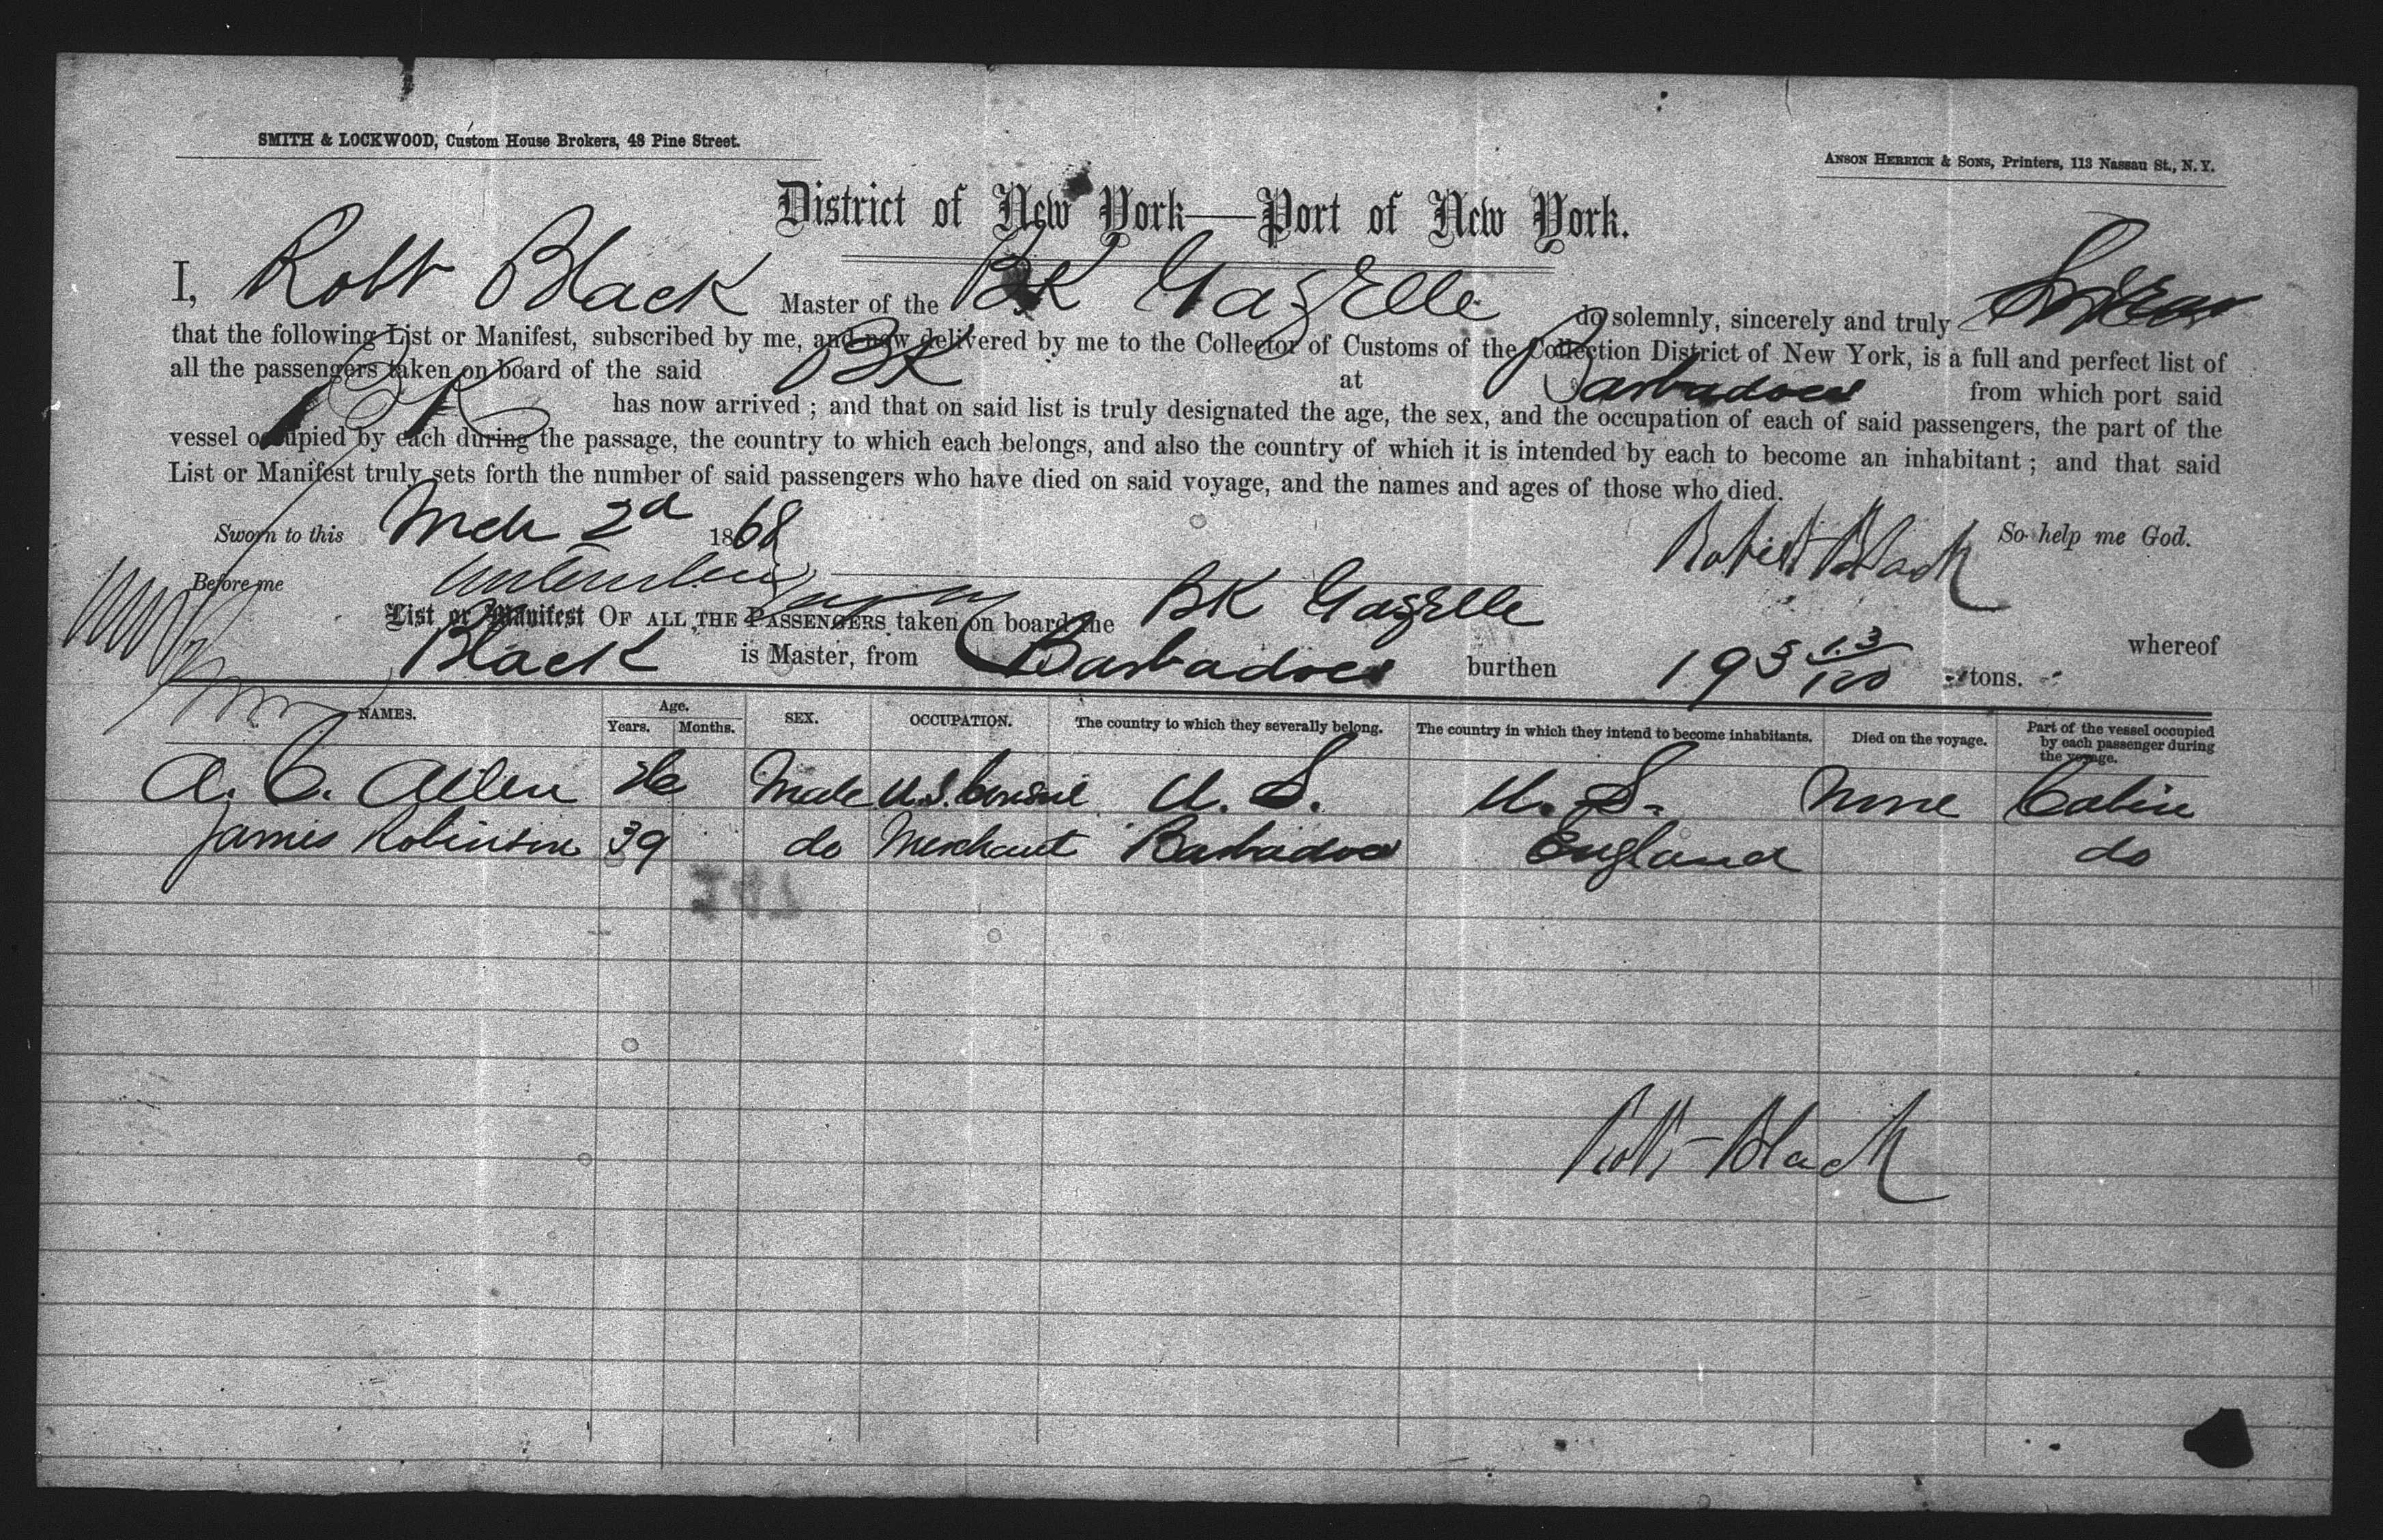 SMITH & LOCKWOOD, Custom House Brokers, 48 Pine Street.
ANSON HERRICK & SONS, Printers, 113 Nassau St., N. Y.
District of New York—Port of New York.
I, Robt Black Master of the BK Gazelle do solemnly, sincerely and truly Swear
that the following List or Manifest, subscribed by me, and now delivered by me to the Collector of Customs of the Collection District of New York, is a full and perfect list of
all the passengers taken on board of the said BK at Barbadoes from which port said
BK has now arrived ; and that on said list is truly designated the age, the sex, and the occupation of each of said passengers, the part of the
vessel occupied by each during the passage, the country to which each belongs, and also the country of which it is intended by each to become an inhabitant ; and that said
List or Manifest truly sets forth the number of said passengers who have died on said voyage, and the names and ages of those who died.
Sworn to this Mch 2d 1868 So help me God.
Robert Black
Before me
List or Manifest OF ALL THE PASSENGERS taken on board the BK Gazelle whereof
Black is Master, from Barbadoes burthen 193 13/100 tons.
NAMES. Age. Years. Months. SEX. OCCUPATION. The country to which they severally belong. The country in which they intend to become inhabitants. Died on the voyage. Part of the vessel occupied by each passenger during the voyage.
A. C. Allen Male U.S. Consul U. S. U. S. None Cabin
James Robinson 39 do Merchant Barbadoes England do
Robt Black